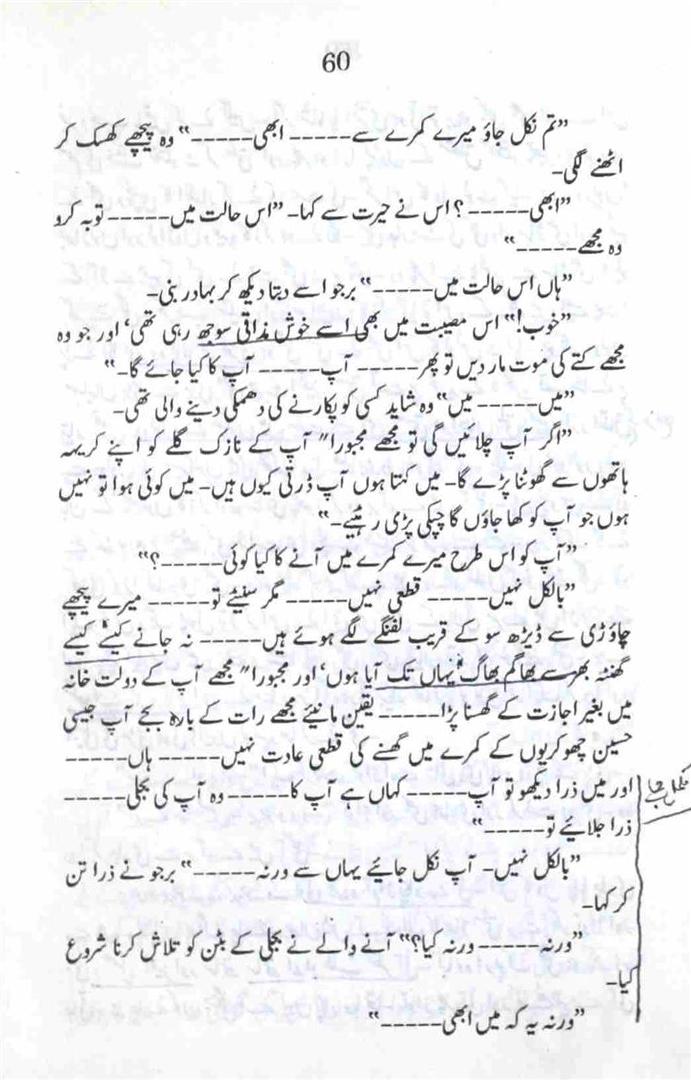 60
”تم نکل جاؤ میرے کمرے سے----- ابھی-----“ وہ پیچھے کھسک کر
اٹھنے لگی۔
”ابھی-----؟ اس نے حیرت سے کہا۔ ”اس حالت میں----- توبہ کرو
وہ مجھے-----“
”ہاں اس حالت میں-----“ برجو اسے دیتا دیکھ کر بہادر بنی۔
”خوب!“ اس مصیبت میں بھی اسے خوش مذاقی سوجھ رہی تھی‘ اور جو وہ
مجھے کتے کی موت مار دیں تو پھر----- آپ----- آپ کا کیا جائے گا۔“
”میں----- میں“ وہ شاید کسی کو پکارنے کی دھمکی دینے والی تھی۔
”اگر آپ چلائیں گی تو مجھے مجبورا" آپ کے نازک گلے کو اپنے کریہہ
ہاتھوں سے گھونٹنا پڑے گا۔ میں کہتا ہوں آپ ڈرتی کیوں ہیں۔ میں کوئی ہوا تو نہیں
ہوں جو آپ کو کھا جاؤں گا چپکی پڑی رہئیے۔“
”آپ کو اس طرح میرے کمرے میں آنے کا کیا کوئی-----؟“
”بالکل نہیں----- قطعی نہیں----- مگر سنیئے تو----- میرے پیچھے
چاؤڑی سے ڈیڑھ سو کے قریب لفنگے لگے ہوئے ہیں----- نہ جانے کیسے‘ کیسے
گھنٹہ بھر سے بھاگم بھاگ یہاں تک آیا ہوں‘ اور مجبورا" مجھے آپ کے دولت خانہ
میں بغیر اجازت کے گھسنا پڑا----- یقین مانیئے مجھے رات کے بارہ بجے آپ جیسی
حسین چھوکریوں کے کمرے میں گھسنے کی قطعی عادت نہیں----- ہاں-----
اور میں ذرا دیکھو تو آپ----- کہاں ہے آپ کا----- وہ آپ کی بجلی-----
ذرا جلائیے تو-----“
”بالکل نہیں- آپ نکل جائیے یہاں سے ورنہ-----“ برجو نے ذرا تن
کر کہا۔
”ورنہ----- ورنہ کیا؟“ آنے والے نے بجلی کے بٹن کو تلاش کرنا شروع
کیا۔
”ورنہ یہ کہ میں ابھی-----“